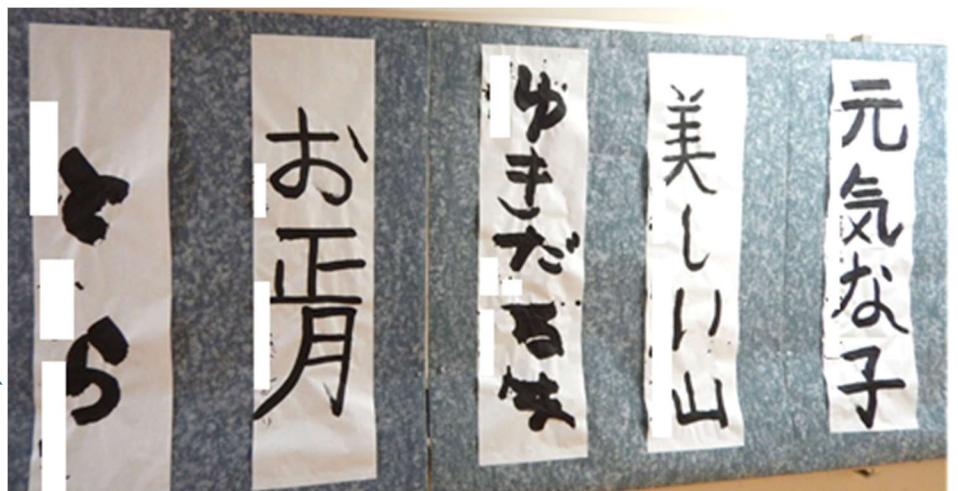 元気な子
美しい山
ゆきだるま
お正月
とら